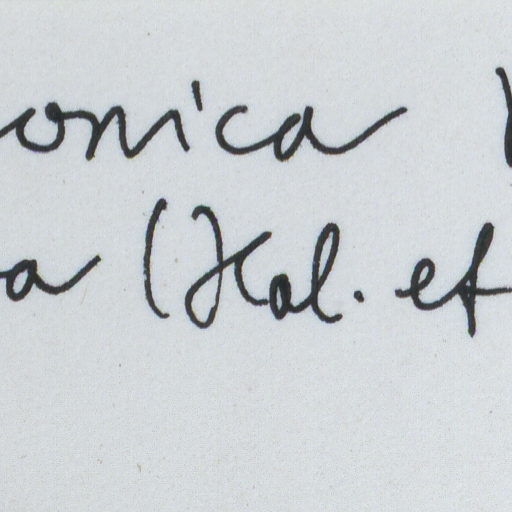 onica
a (Hal. et